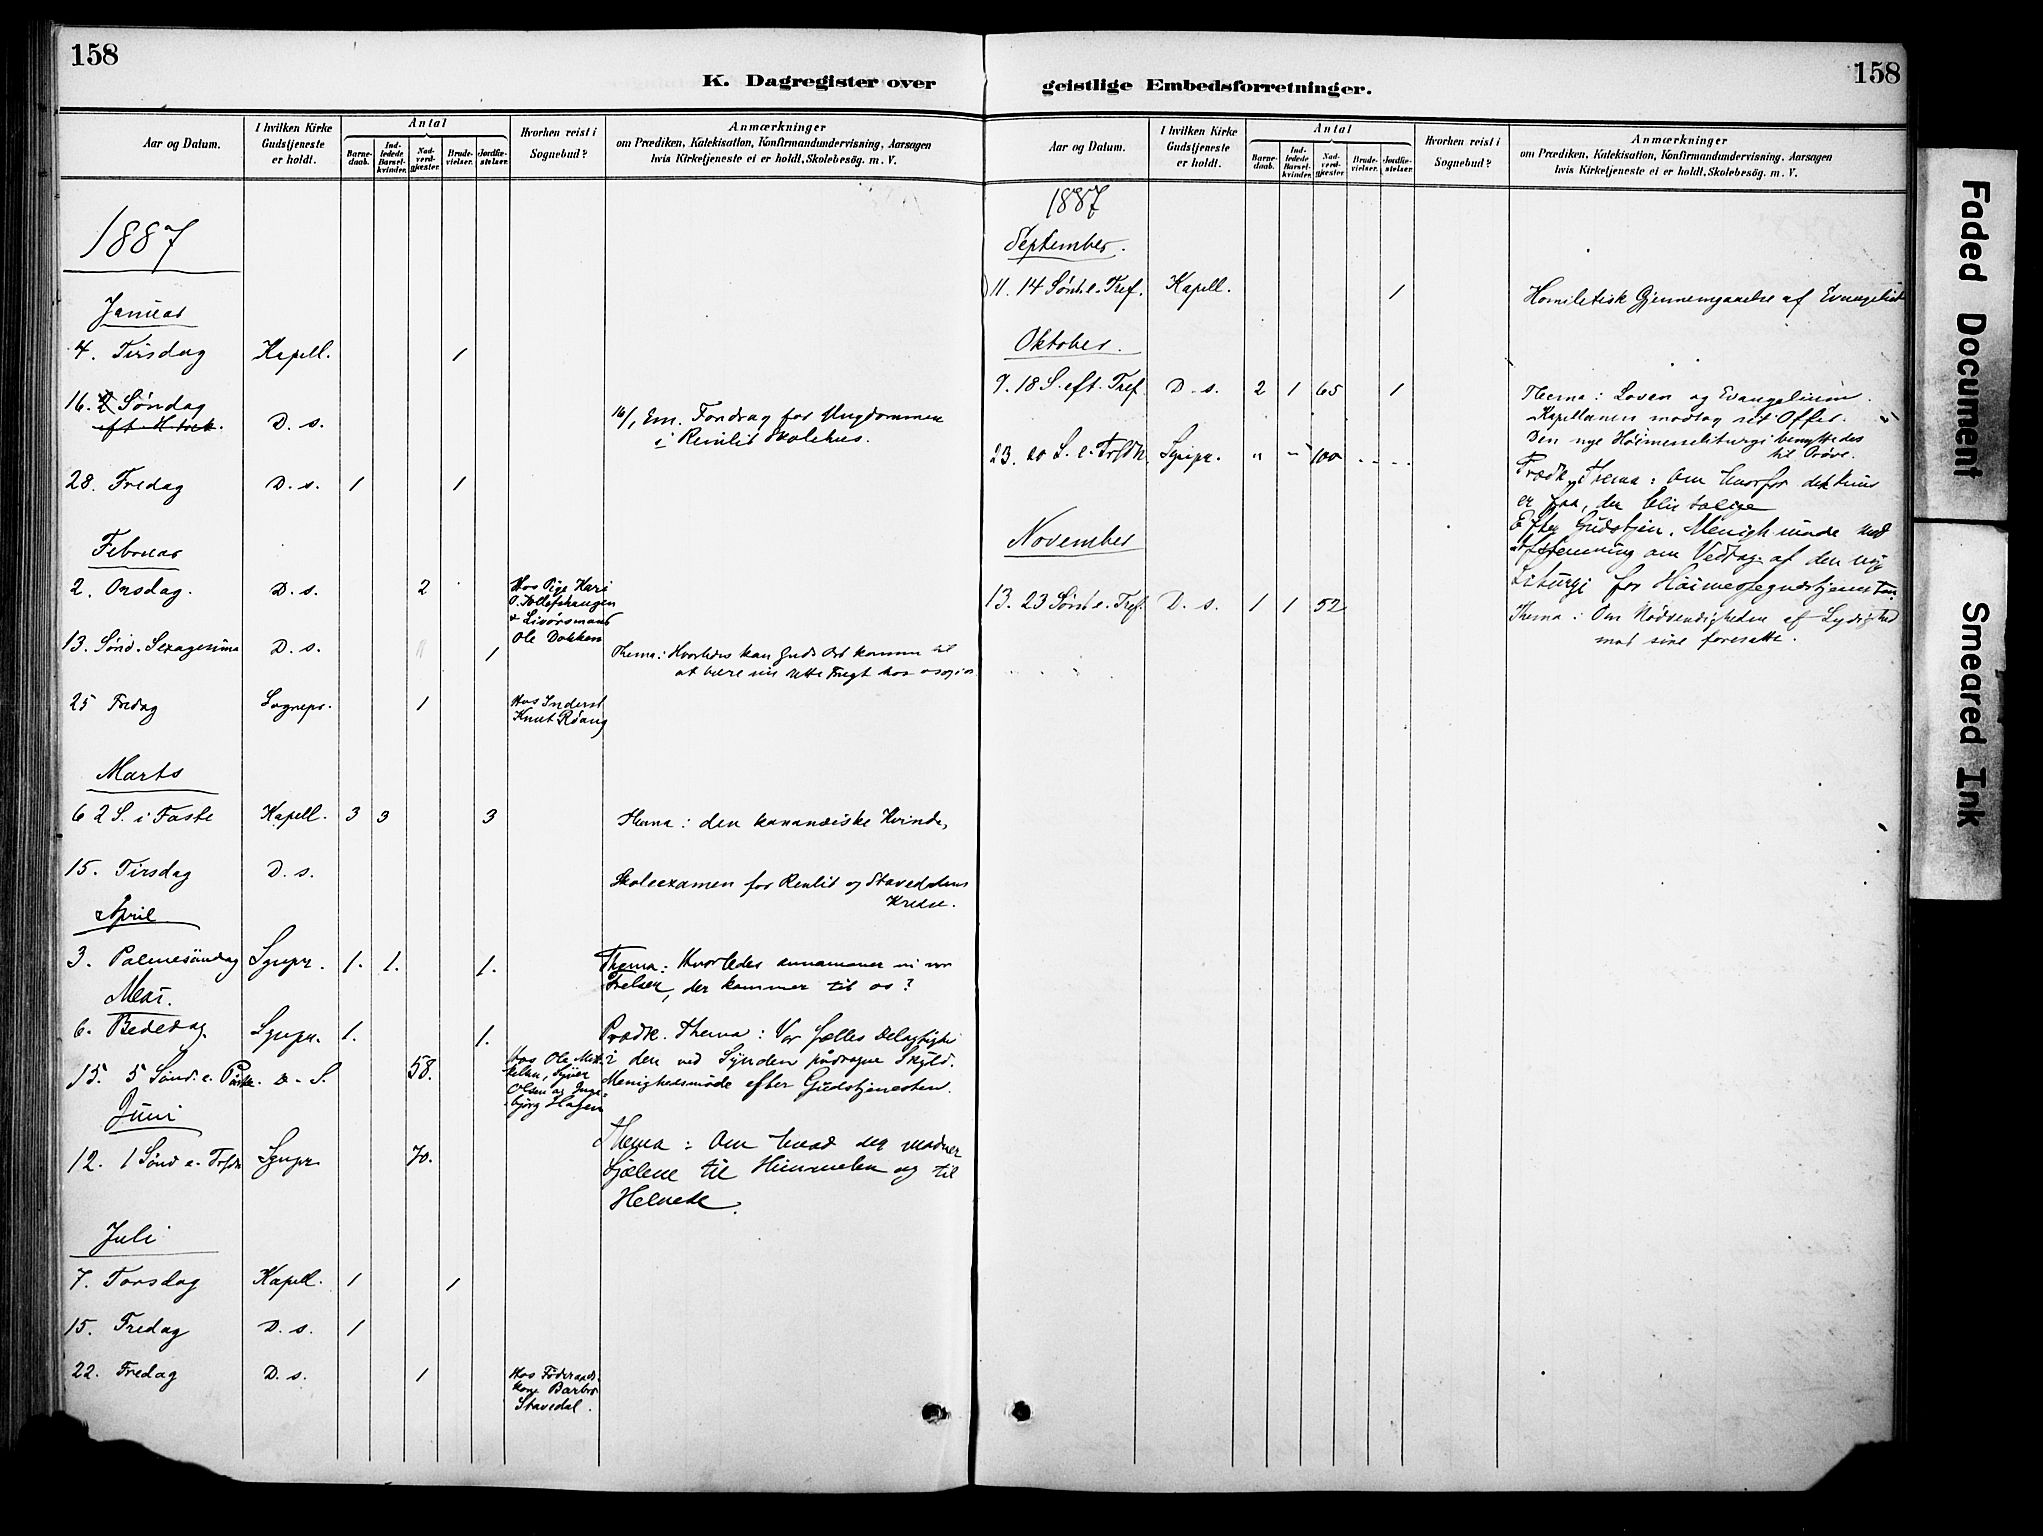 158
K. Dagregister over
Aar og Datum.
I hvilken Kirke Gudstjeneste er holdt.
Antal
Barne-daab.
Ind-ledede Barsel-kvinder.
Nad-verd-gjæster.
Brude-vielser.
Jordfæ-stelser.
Hvorhen reist i Sognebud?
Anmærkninger
om Prædiken, Katekisation, Konfirmandundervisning, Aarsagen
hvis Kirketjeneste ei er holdt, Skolebesög. m. V.
1887
Januar
4. Tirsdag Kapell. 1
16. 2 Søndag
eft. H. trek. D. s. 16/1 Em. Foredrag for Ungdommen
i Renlid Skolehus.
28. Fredag D. s. 1 1
Februar
2. Onsdag. D. s. 2 Hos Pige Kari
O.
& Livörsmand
Ole Dokken
13. Sønd. Sexagesima D. s. 1 Thema: Hvorledes kan Guds Ord komme til
at bære sin rette Frugt hos os
25 Fredag Sognepr. 1 Hos Inderst
Knut Röang
Marts
6 2 S. i Faste Kapell. 3 3 3 Thema: den kananæiske Kvinde,
15. Tirsdag D. s. Skoleexamen for Renlid og Stavedalens
Kredse.
April
3. Palmesöndag Sgnpr. 1. 1. 1. Thema: Hvorledes annammer vi vor
Frelser, der kommer til os?
Mai.
6. Bededag. Sgnpr. 1. 1. Prædk. Thema: Vor fælles Delagtighe
i den ved Synden pådragne Skyld.
15. 5 Sönd. e. Påske. D. S. 58. Hos Ole
Olsen og Inge-
björg Hagen
Menighedsmöde efter Gudstjenesten.
Juni
12. 1 Sönd e. Trfdh Sgnpr 70. Thema: Om hvad der modner
Sjælene til Himmelen og til
Helvede.
Juli
7. Torsdag Kapell. 1 1
15. Fredag D. s. 1
22. Fredag D. s. 1 Hos Föderaads-
kone Barbro
Stavedal.
158
geistlige Embedsforretninger.
Aar og Datum.
I hvilken Kirke Gudstjeneste er holdt.
Antal
Barne-daab.
Ind-ledede Barsel-kvinder.
Nad-verd-gjæster.
Brude-vielser.
Jordfæ-stelser.
Hvorhen reist i Sognebud?
Anmærkninger
om Prædiken, Katekisation, Konfirmandundervisning, Aarsagen
hvis Kirketjeneste ei er holdt, Skolebesög. m. V.
1887
September.
11. 14 Sönd. e. Tref. Kapell. 1 Homiletisk Gjennemgaaelse af Evangeliet
Oktober.
9. 18 S. eft. Tref. D. s. 2 1 65 1 Thema: Loven og Evangelium.
Kapellanen modtog sit Offer.
Den nye Höimesseliturgi benyttedes
til Pröve.
23. 20 S. e. Trfdh. Sgnpr. " " 100 Prædk. Thema: Om hvorfor det kun
er faa, der blir salige
Efter Gudstjen. Menigh.möde med
afstemning om Vedtag. af den nye
Liturgi for Höimessegudstjenesten.
November
13. 23 Sönd. e. Tref. D. s. 1 1 52 Thema: Om Nödvendigheden af Lydighed
mod sine foresatte.
Faded Document
Smeared Ink